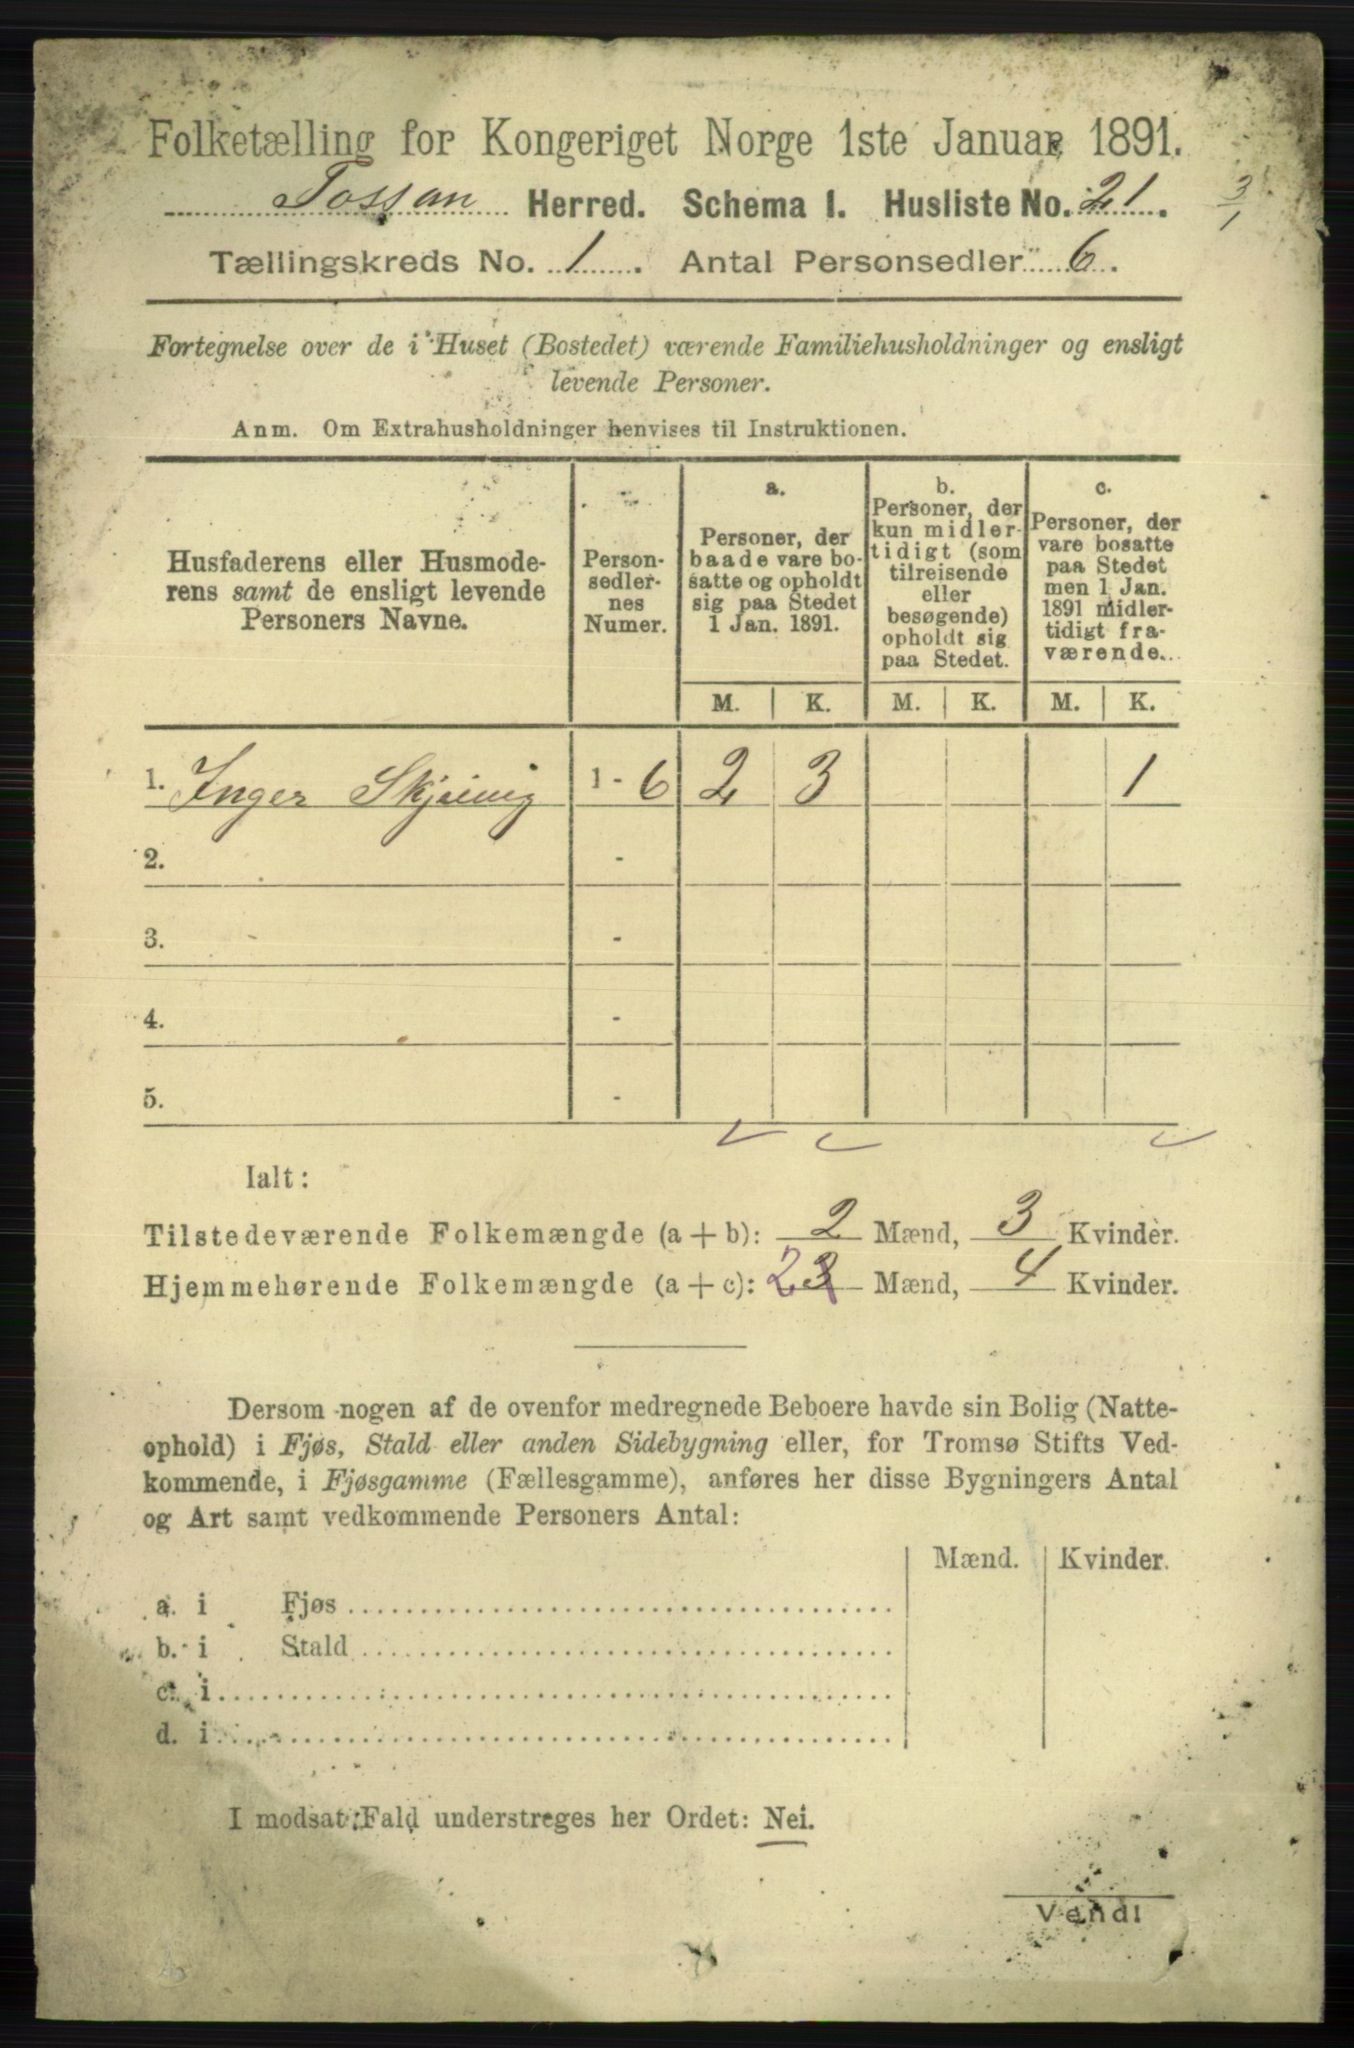 Folketælling for Kongeriget Norge 1ste Januar 1891.
Fossan Herred. Schema I. Husliste No. 21.
3/1
Tællingskreds No. 1. Antal Personsedler 6.
Fortegnelse over de i Huset (Bostedet) værende Familiehusholdninger og ensligt
levende Personer.
Anm. Om Extrahusholdninger henvises til Instruktionen.
Husfaderens eller Husmode-
rens samt de ensligt levende
Personers Navne.
Person-
sedler-
nes
Numer.
a.
Personer, der
baade vare bo-
satte og opholdt
sig paa Stedet
1 Jan. 1891.
b.
Personer, der
kun midler-
tidigt (som
tilreisende
eller
besøgende)
opholdt sig
paa Stedet.
c.
Personer, der
vare bosatte
paa Stedet
men 1 Jan.
1891 midler-
tidigt fra-
værende.
M. K. M. K. M. K.
1. Inger 1 - 6 2 3 1
2. -
3. -
4. -
5. -
Ialt:
Tilstedeværende Folkemængde (a + b): 2 Mænd, 3 Kvinder.
Hjemmehørende Folkemængde (a + c): 2 3 Mænd, 4 Kvinder.
Dersom nogen af de ovenfor medregnede Beboere havde sin Bolig (Natte-
ophold) i Fjøs, Stald eller anden Sidebygning eller, for Tromsø Stifts Ved-
kommende, i Fjøsgamme (Fællesgamme), anføres her disse Bygningers Antal
og Art samt vedkommende Personers Antal:
Mænd. Kvinder.
a. i Fjøs
b. i Stald
c. i
d. i
I modsat Fald understreges her Ordet: Nei.
Vend!